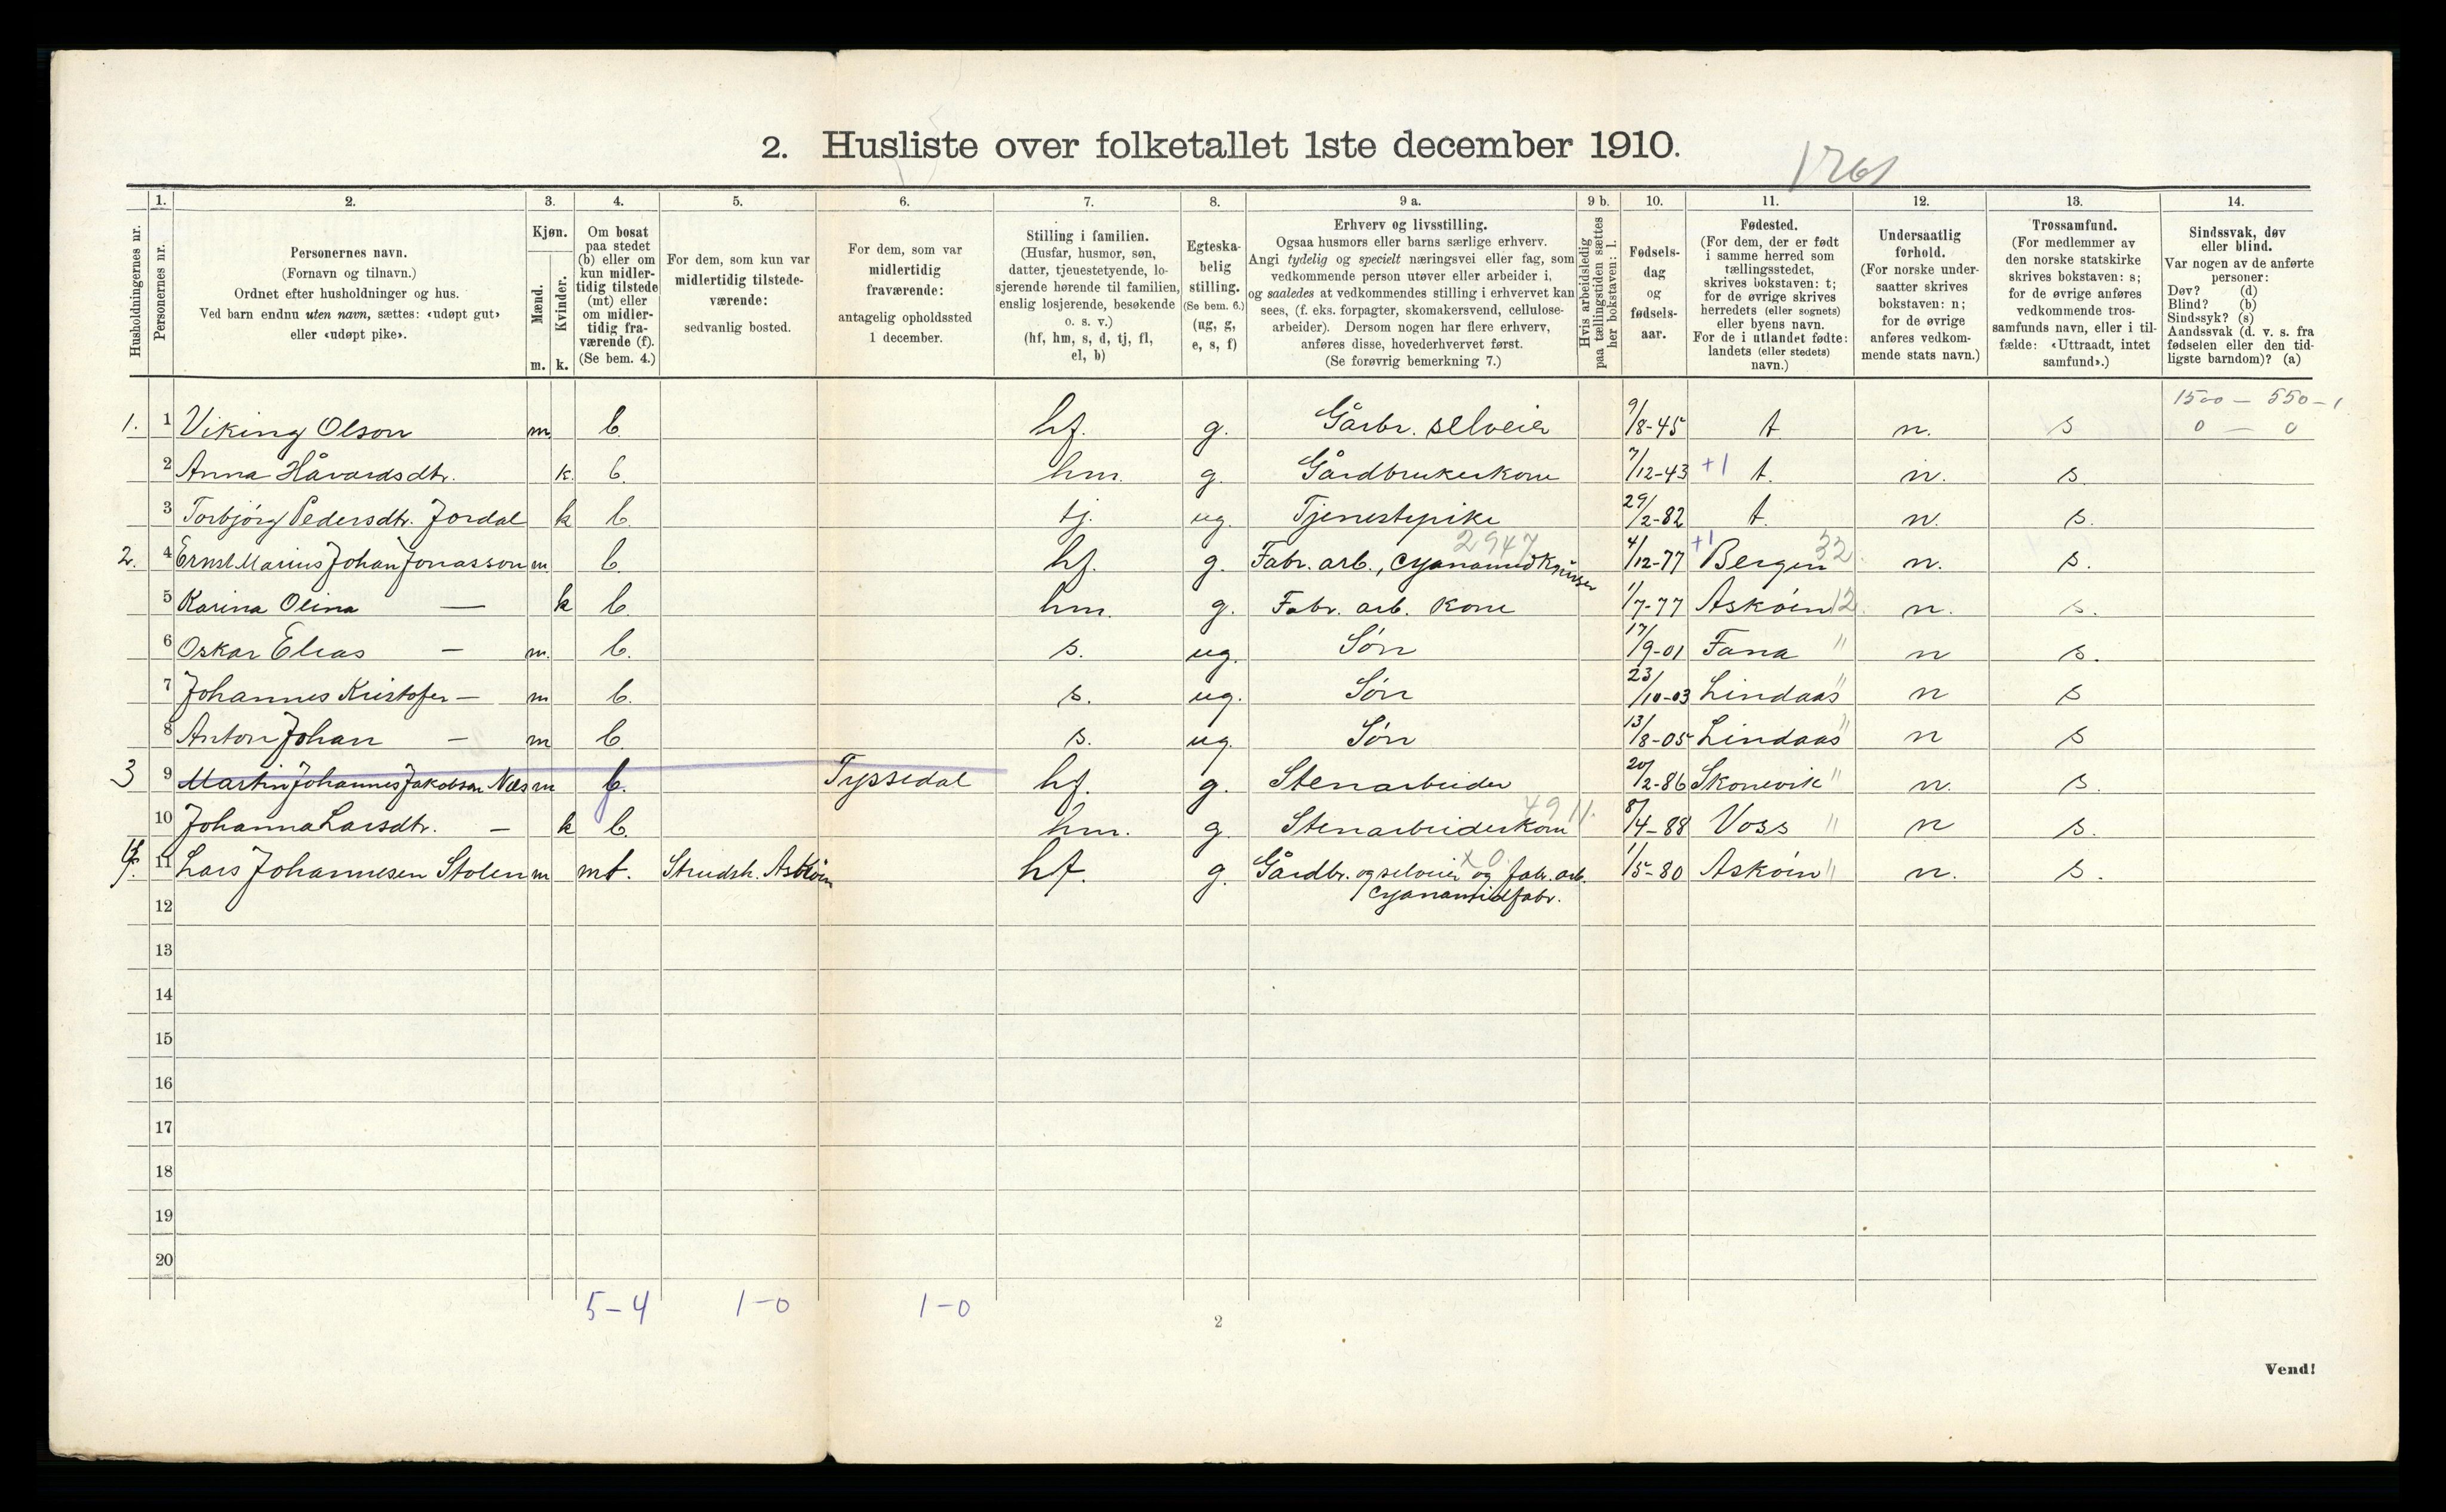 2. Husliste over folketallet 1ste december 1910.
1. 2. 3. 4. 5. 6. 7. 8. 9 a. 9 b. 10. 11. 12. 13. 14.
Husholdningernes nr.
Personernes nr.
Personernes navn.
(Fornavn og tilnavn.)
Ordnet efter husholdninger og hus.
Ved barn endnu uten navn, sættes: «udøpt gut»
eller «udøpt pike».
Kjøn.
Mænd.
Kvinder.
m. k.
Om bosat
paa stedet
(b) eller om
kun midler-
tidig tilstede
(mt) eller
om midler-
tidig fra-
værende (f).
(Se bem. 4.)
For dem, som kun var
midlertidig tilstede-
værende:
sedvanlig bosted.
For dem, som var
midlertidig
fraværende:
antagelig opholdssted
1 december.
Stilling i familien.
(Husfar, husmor, søn,
datter, tjenestetyende, lo-
sjerende hørende til familien,
enslig losjerende, besøkende
o. s. v.)
(hf, hm, s, d, tj, fl,
el, b)
Egteska-
belig
stilling.
(Se bem. 6.)
(ug, g,
e, s, f)
Erhverv og livsstilling.
Ogsaa husmors eller barns særlige erhverv.
Angi tydelig og specielt næringsvei eller fag, som
vedkommende person utøver eller arbeider i,
og saaledes at vedkommendes stilling i erhvervet kan
sees, (f. eks. forpagter, skomakersvend, cellulose-
arbeider). Dersom nogen har flere erhverv,
anføres disse, hovederhvervet først.
(Se forøvrig bemerkning 7.)
Hvis arbeidsledig
paa tællingstiden sættes
her bokstaven: l.
Fødsels-
dag
og
fødsels-
aar.
Fødested.
(For dem, der er født
i samme herred som
tællingsstedet,
skrives bokstaven: t;
for de øvrige skrives
herredets (eller sognets)
eller byens navn.
For de i utlandet fødte:
landets (eller stedets)
navn.)
Undersaatlig
forhold.
(For norske under-
saatter skrives
bokstaven: n;
for de øvrige
anføres vedkom-
mende stats navn.)
Trossamfund.
(For medlemmer av
den norske statskirke
skrives bokstaven: s;
for de øvrige anføres
vedkommende tros-
samfunds navn, eller i til-
fælde: «Uttraadt, intet
samfund».)
Sindssvak, døv
eller blind.
Var nogen av de anførte
personer:
Døv? (d)
Blind? (b)
Sindssyk? (s)
Aandssvak (d. v. s. fra
fødselen eller den tid-
ligste barndom)? (a)
1500 — 550 — 1
1. 1 Viking Olson m b. hf. g. Gårbr. selveier 9/8-45 t n. s 0 — 0
2 Anna Håvardsdtr. k. b. hm. g. Gårdbrukerkone 7/12-43 +1 t. n. s.
3 Torbjörg Pedersdtr. Jordal k b. tj. ug. Tjenestepike 29/2-82 t. n. s.
2947
2. 4 Ernst Marius Johan Jonasson m. b. hf. g. Fabr. arb., cyanamidknuser 4/12-77 +1 Bergen 32. n. s.
5 Karina Olina — k b. hm. g. Fabr. arb. kone 1/7-77 Askøin 12. n. s.
6 Oskar Elias — m. b. s. ug. Søn 17/9-01 Fana " n s.
7 Johannes Kristofer — m b. s. ug. Søn 23/10-03 Lindaas " n s
8 Anton Johan — m b. s. ug. Søn 13/8-05 Lindaas " n s
3 9 Martin Johannes Jakobson Næs m f. Tyssedal hf. g. Stenarbeider 20/2-86 Skonevik " n. s.
4911.
10 Johanna Larsdtr. — k b. hm. g. Stenarbeiderkone 8/4-88 Voss " n s.
11 Lars Johannesen Stolen m mt. Strudsh. Askøin hf. g. Gårdbr. og selveier og fabr. arb. 1/5-80 Askøin " n. s.
12 cyanamidfabr.
13
14
15
16
17
18
19
20
5-4 1-0 1-0
2
Vend!